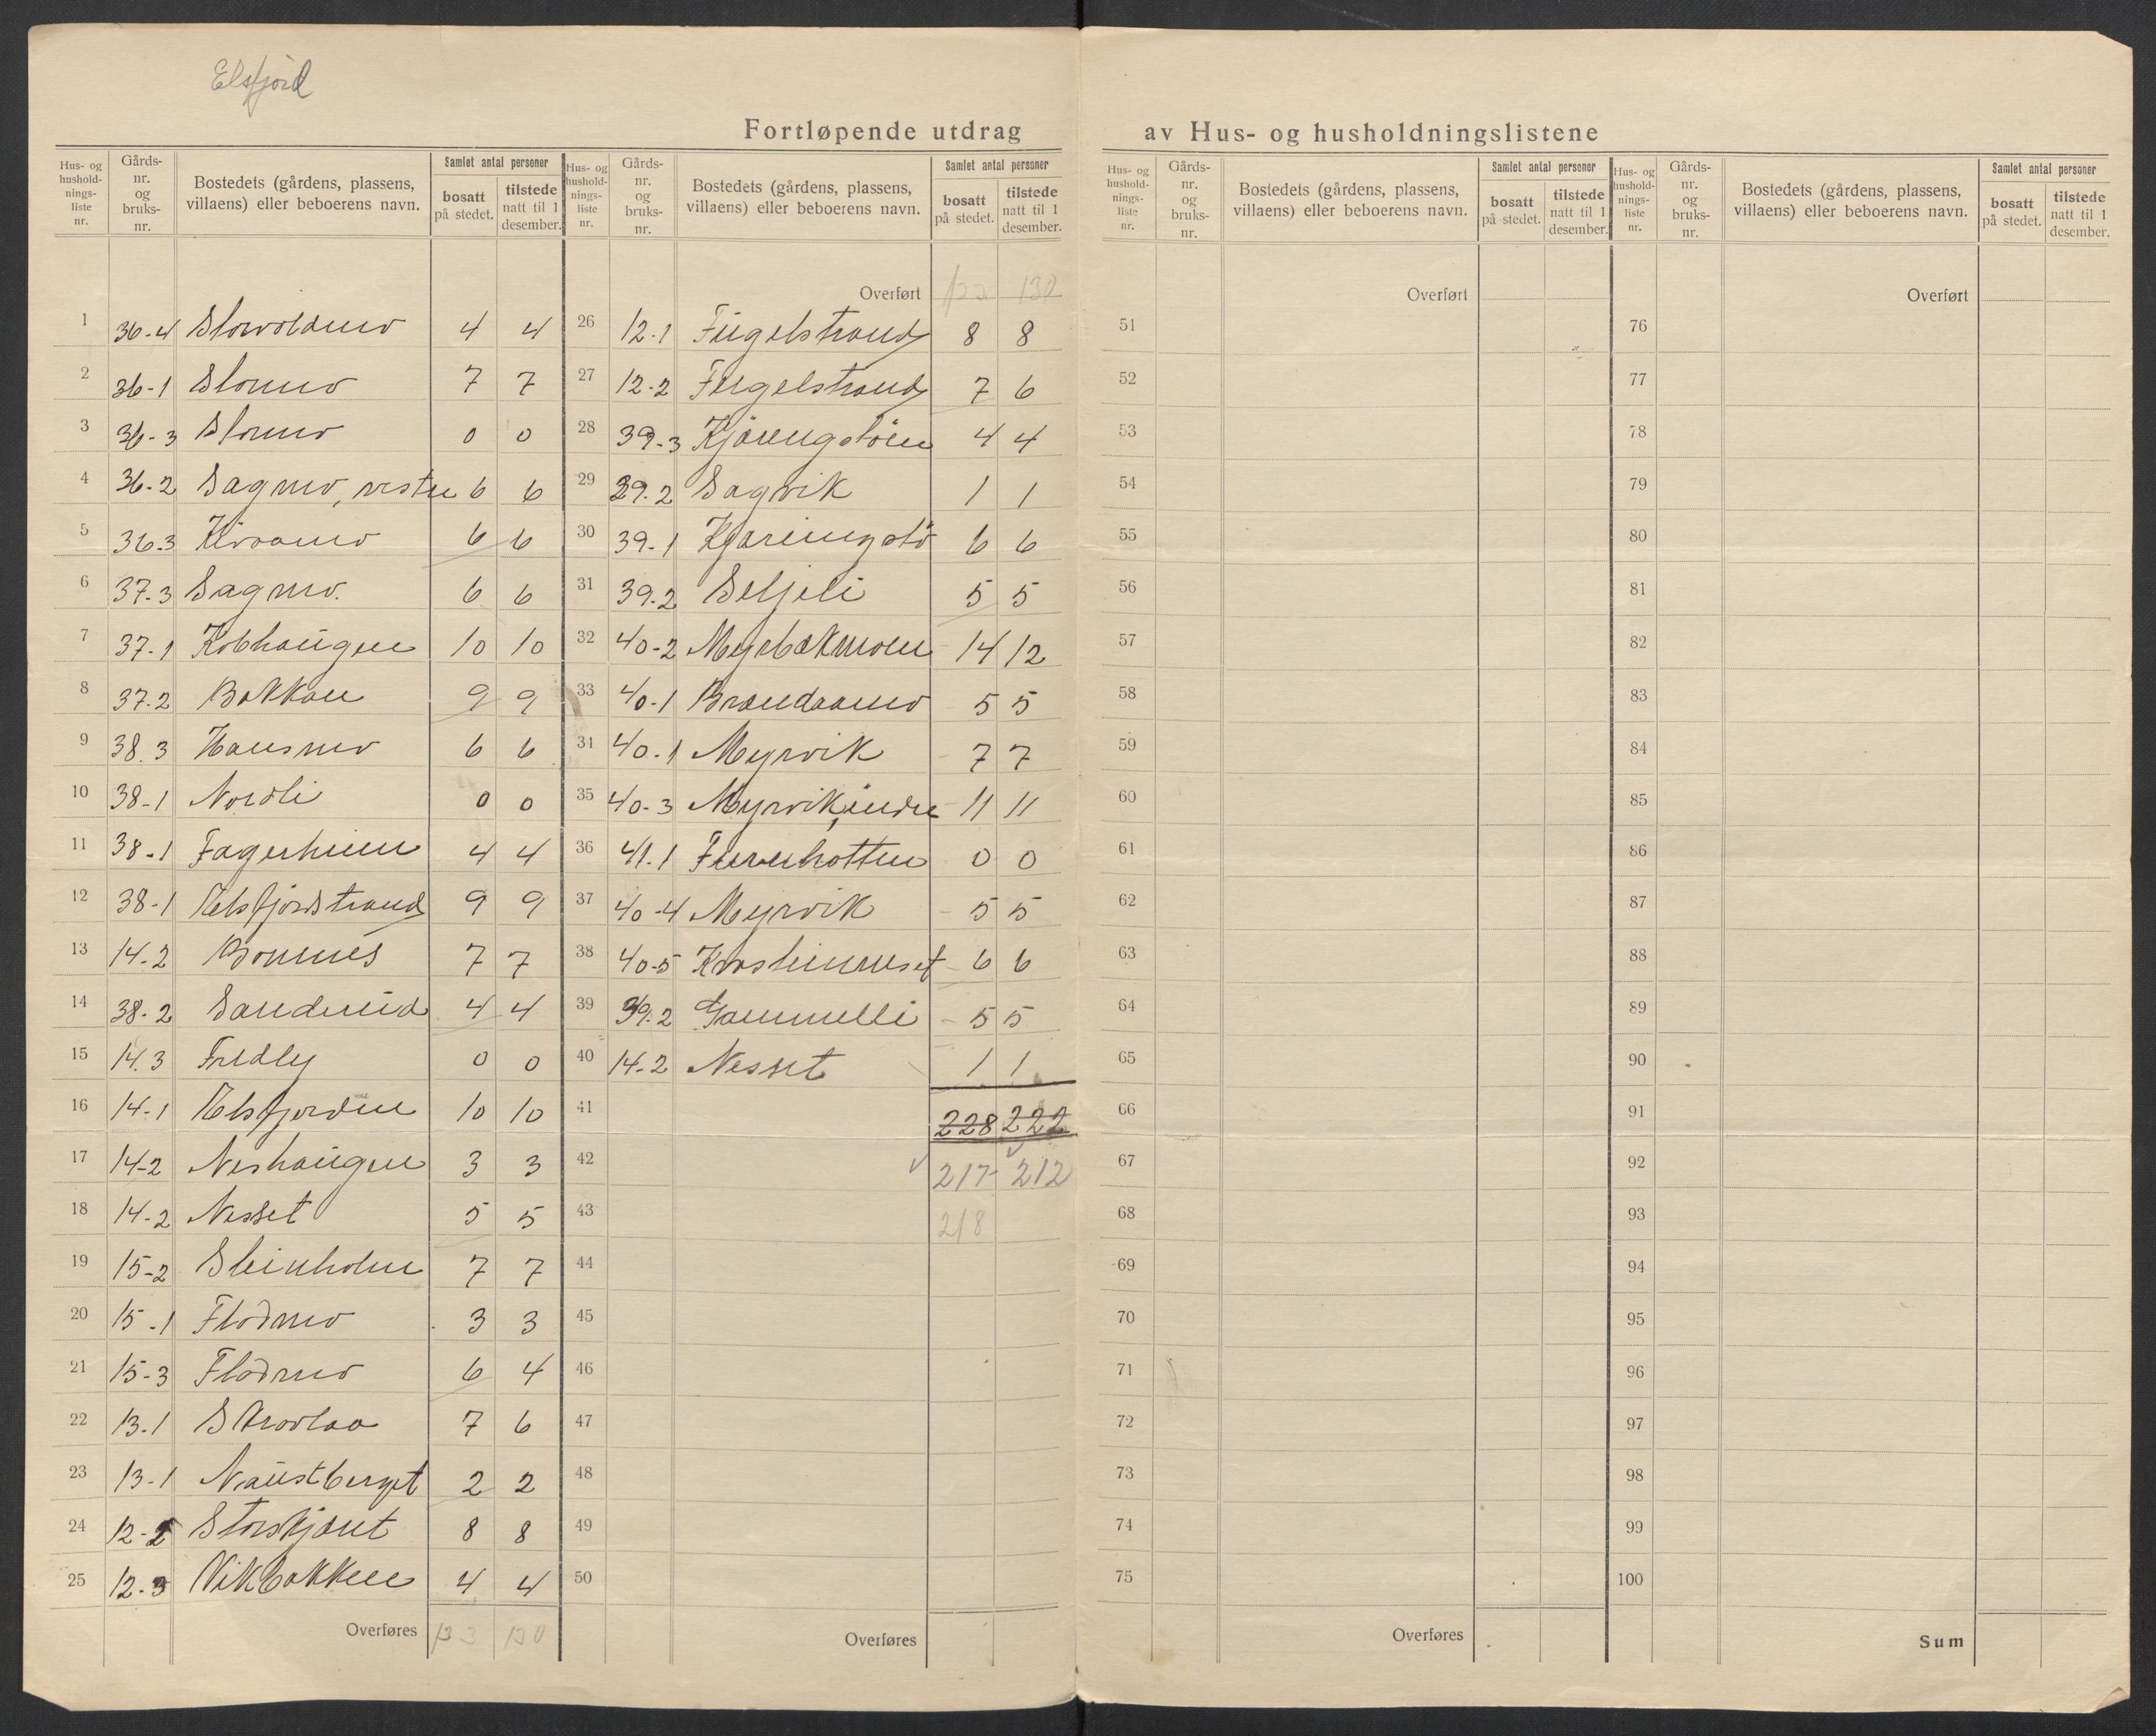 Elsfjord
Fortløpende utdrag av Hus- og husholdningslistene
Hus- og husholdningsliste nr. Gårds-nr. og bruks-nr. Bostedets (gårdens, plassens, villaens) eller beboerens navn. Samlet antal personer bosatt på stedet. tilstede natt til 1 desember.
1 36-4 Storvoldmo 4 4
2 36-1 Stormo 7 7
3 36-3 Stormo 0 0
4 36-2 Sagmo, vestre 6 6
5 36-3 Kroomo 6 6
6 37-3 Sagmo. 6 6
7 37-1 Kobhaugen 10 10
8 37-2 Bakkan 9 9
9 38.3 Hansmo 6 6
10 38-1 Nordli 0 0
11 38-1 Fagerheim 4 4
12 38-1 Elsfjordstrand 9 9
13 14-2 Bomnes 7 7
14 38-2 Sandmid 4 4
15 14.3 Fredly 0 0
16 14-1 Elsfjorden 10 10
17 14-2 Neshaugen 3 3
18 14-2 Nesset 5 5
19 15-2 Steinholm 7 7
20 15-1 Flodmo 3 3
21 15-3 Flodmo 6 4
22 13-1 Stravlaa 7 6
23 13-1 Naustberget 2 2
24 12-2 Storskjæret 8 8
25 12-3 Vikbakken 4 4
Overføres 133 130
Hus- og husholdningsliste nr. Gårds-nr. og bruks-nr. Bostedets (gårdens, plassens, villaens) eller beboerens navn. Samlet antal personer bosatt på stedet. tilstede natt til 1 desember.
Overført 133 130
26 12-1 Fugelstrand 8 8
27 12-2 Fugelstrand 7 6
28 39-3 Kjæringstøen 4 4
29 39-2 Sagvik 1 1
30 39-1 Kjæringstø 6 6
31 39-2 Seljeli 5 5
32 40-2 Myrbakmoen 14 12
33 40-1 Brændaamo 5 5
34 40-1 Myrvik 7 7
35 40-3 Myrvik, indre 11 11
36 41.1 Furuhatten 0 0
37 40-4 Myrvik 5 5
38 40-5 6 6
39 39-2 Gammelli 5 5
40 14-2 Nesset 1 1
41 228 222
42 217 212
43 218
44
45
46
47
48
49
50
Overføres
Hus- og husholdningsliste nr. Gårds-nr. og bruks-nr. Bostedets (gårdens, plassens, villaens) eller beboerens navn. Samlet antal personer bosatt på stedet. tilstede natt til 1 desember.
Overført
51
52
53
54
55
56
57
58
59
60
61
62
63
64
65
66
67
68
69
70
71
72
73
74
75
Overføres
Hus- og husholdningsliste nr. Gårds-nr. og bruks-nr. Bostedets (gårdens, plassens, villaens) eller beboerens navn. Samlet antal personer bosatt på stedet. tilstede natt til 1 desember.
Overført
76
77
78
79
80
81
82
83
84
85
86
87
88
89
90
91
92
93
94
95
96
97
98
99
100
Sum